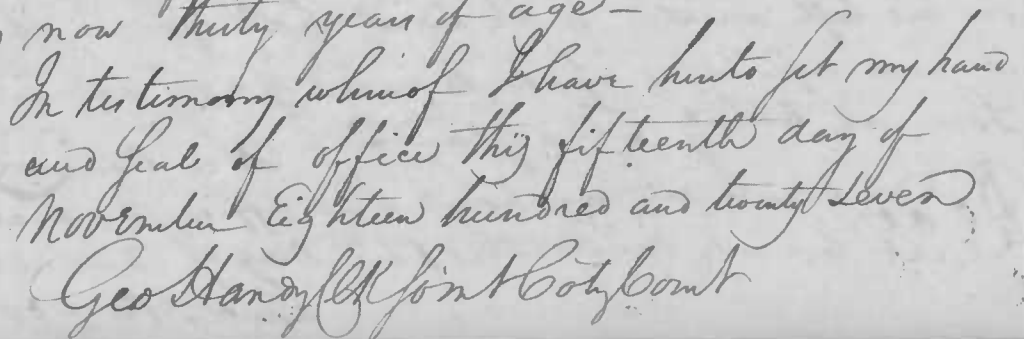 now thirty years of age —
In testimony whereof I have hereto set my hand
and seal of office this fifteenth day of
November Eighteen hundred and twenty seven
Geo Handy Clk Somt Coty Court